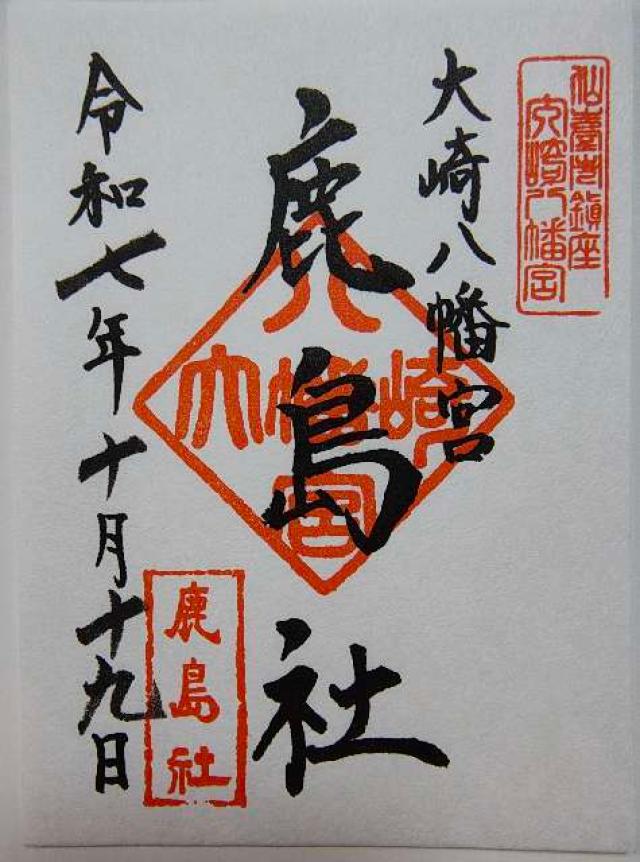 仙臺市鎮座
大崎八幡宮
大崎八幡宮
鹿島社
八
大幡崎
宮
鹿島社
令和七年十月十九日